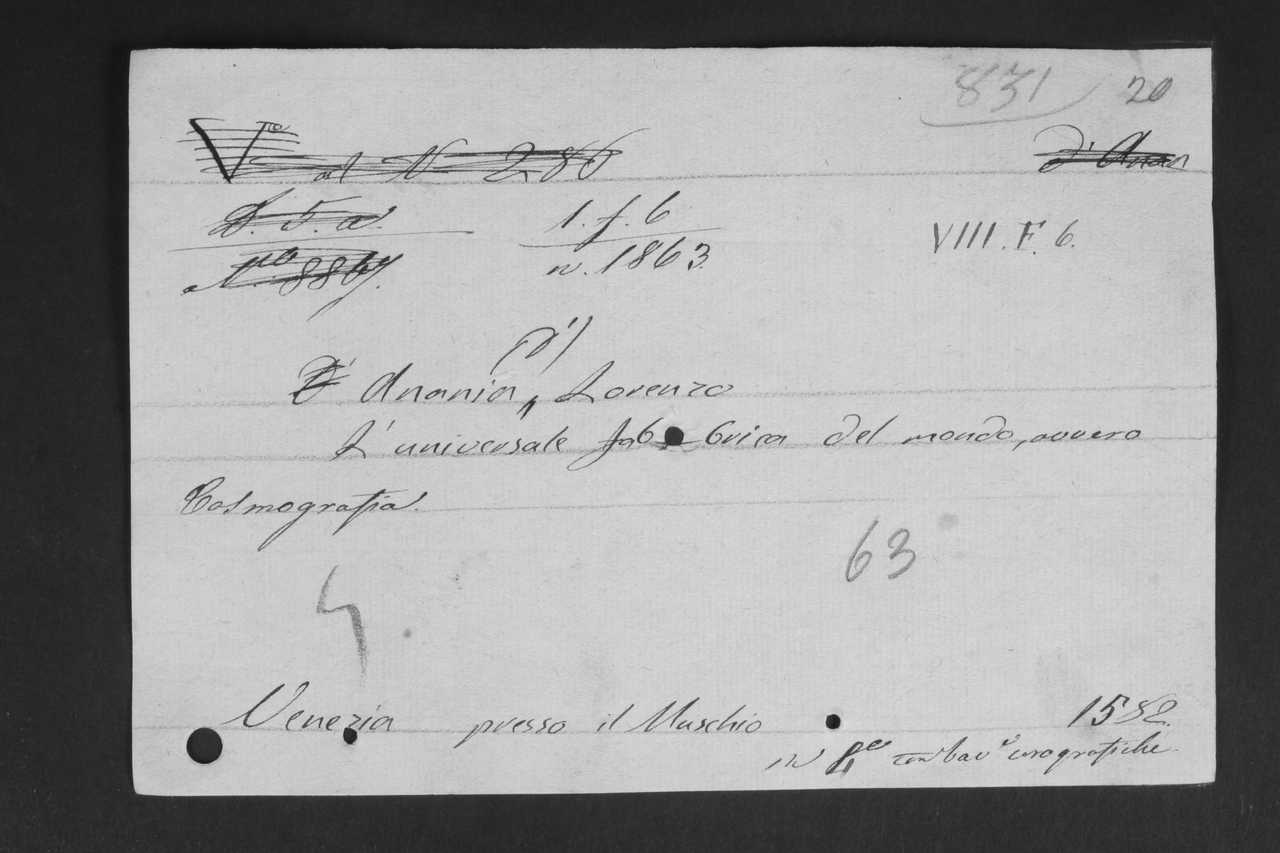 831 20
V.ro al N 286 D'Anan
D. 5. a. 1. f. 6 VIII. F. 6.
N.ro 8867. n. 1863.
(D')
D' Anania, Lorenzo
L' universale fabbrica del mondo, ovvero
Cosmografia.
63
4
Venezia presso il Muschio 1582
in 4.o con tav.e corografiche.